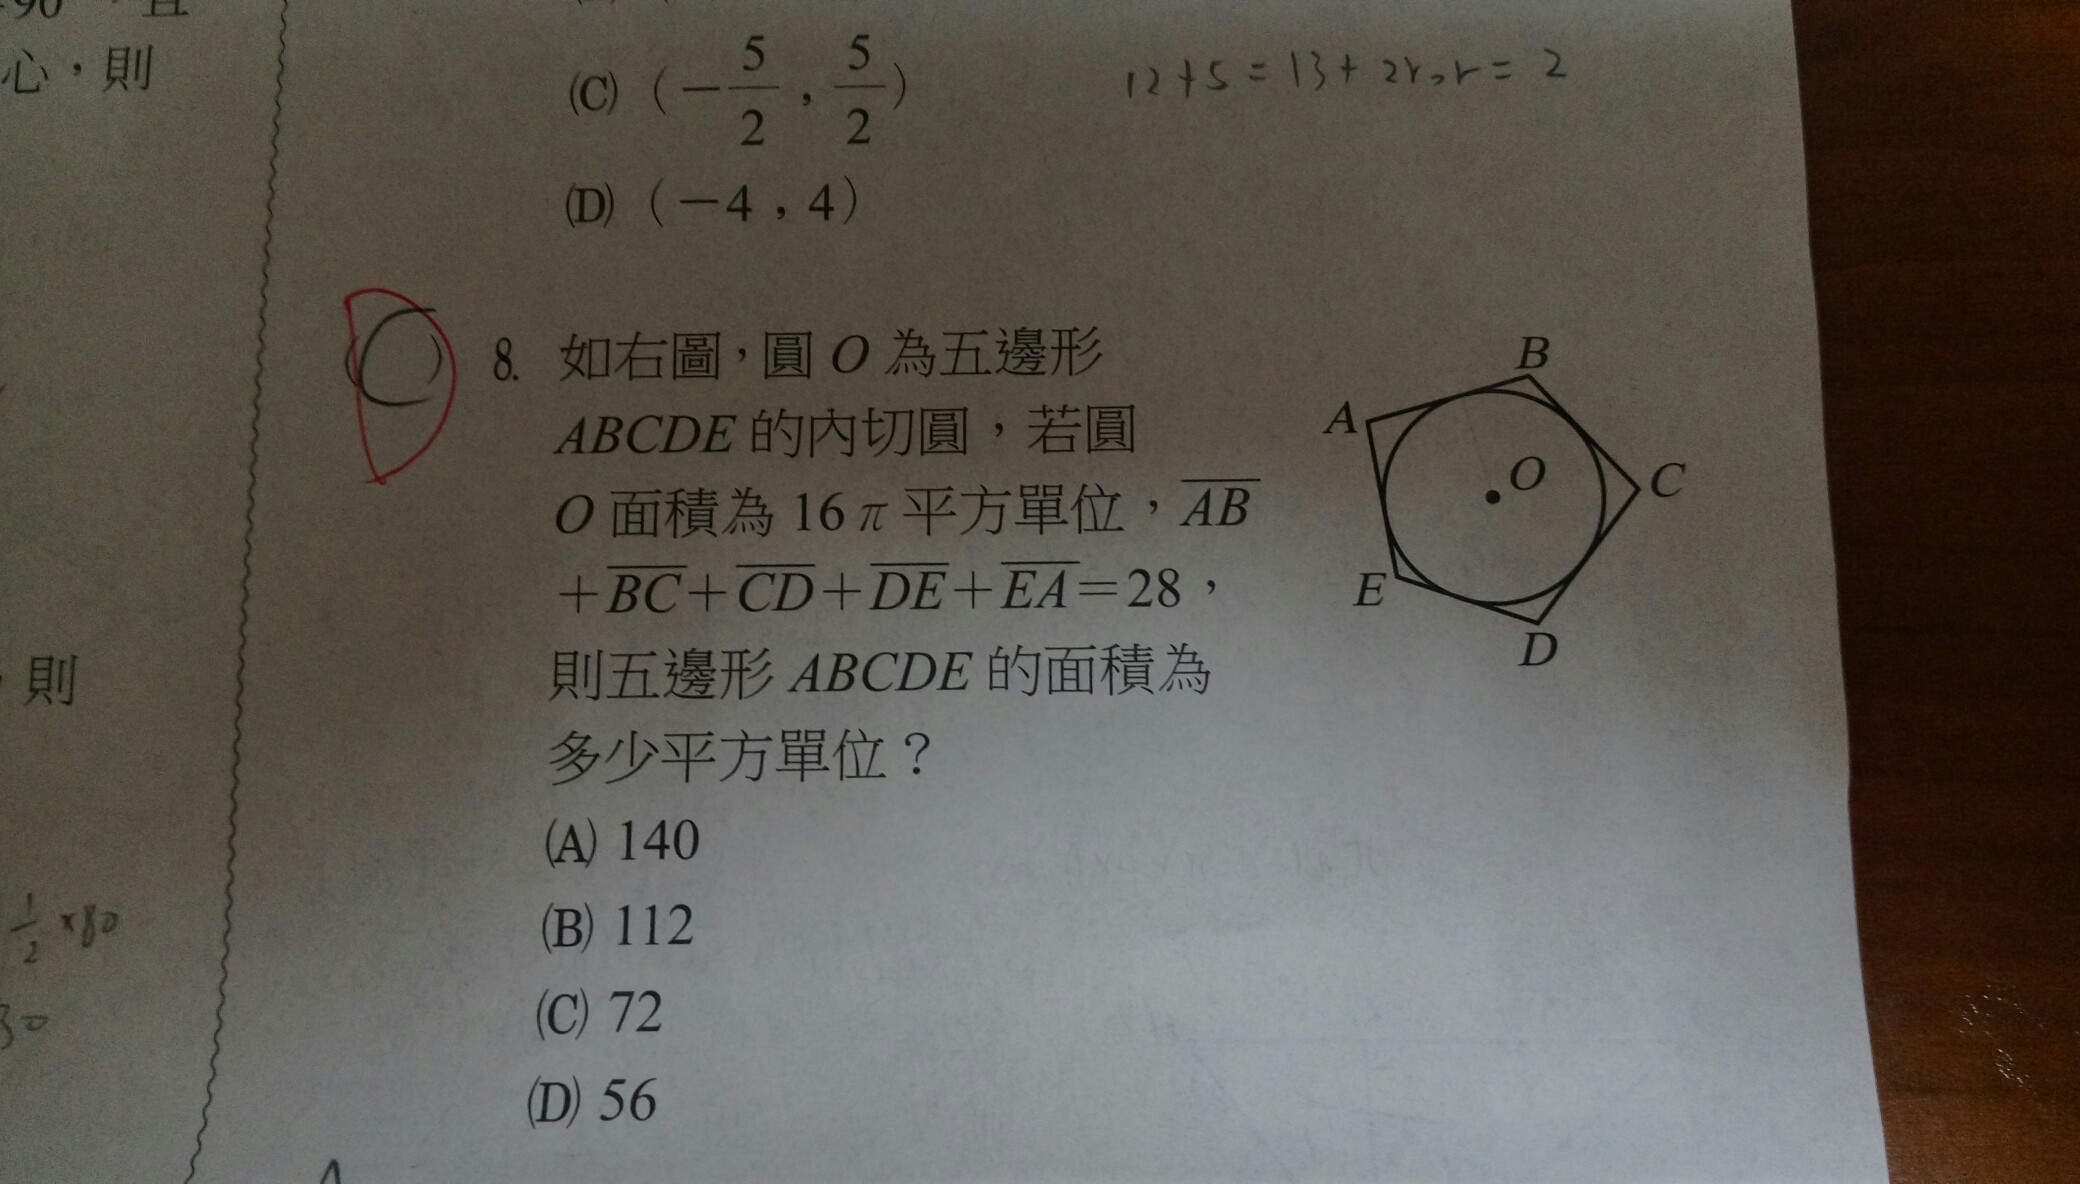 心，則
(C) (－5/2，5/2)
12+5=13+2r，r=2
(D) (－4，4)
(C) 8. 如右圖，圓 O 為五邊形
ABCDE 的內切圓，若圓
O 面積為 16π 平方單位，AB
＋BC＋CD＋DE＋EA＝28，
則五邊形 ABCDE 的面積為
多少平方單位？
(A) 140
(B) 112
(C) 72
(D) 56
A
B
C
O
E
D
則
1/2 ×80
30